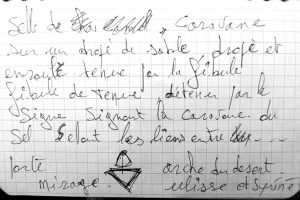 Selle de Caravane
sur un drapé de sable drapé et
enroulé tenue par la fibule
fibule de tenue détenue par le
Signe Signant la caravane du
Sel Selant les liens entre
porte arche du desert
mirage ulisse et Syrène